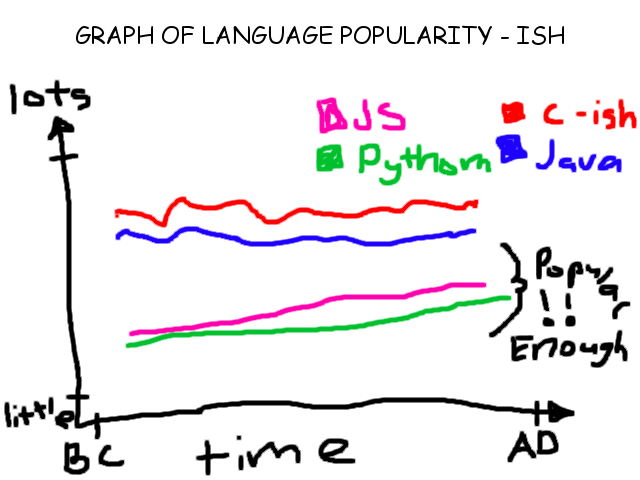 GRAPH OF LANGUAGE POPULARITY - ISH
lots
JS
C-ish
Python
Java
Popular
!!
Enough
little
BC
time
AD